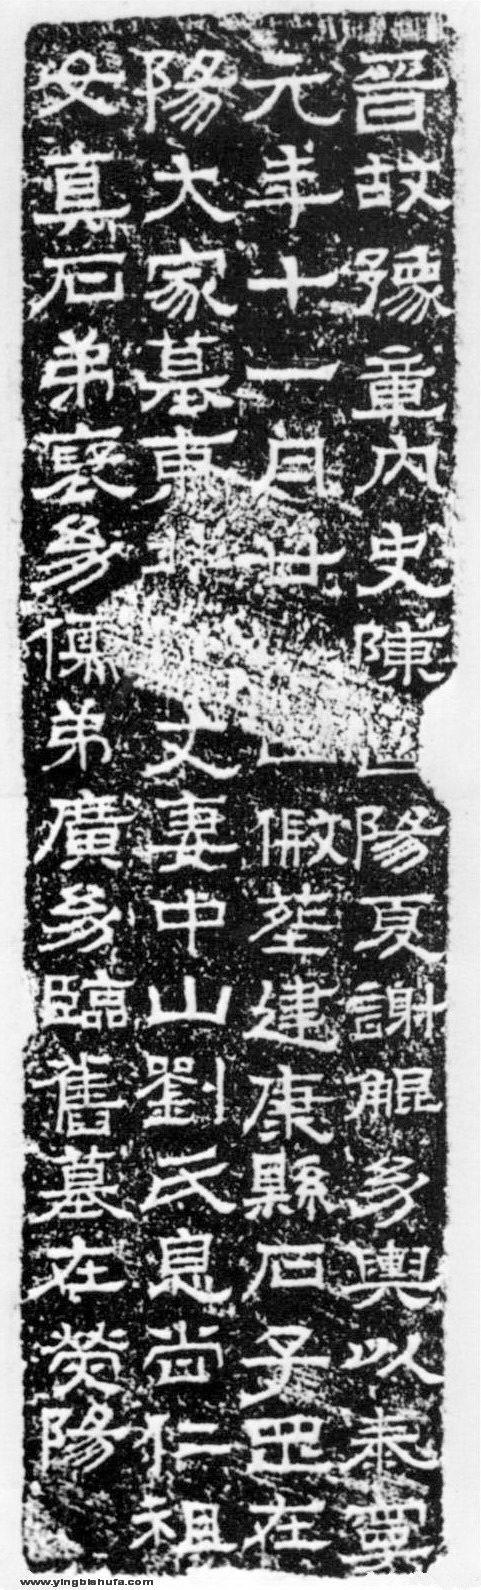 晉故豫章內史陳陽夏謝鯤幼輿以泰寧
元年十一月廿假葬建康縣石子罡在
陽大家墓東北丈妻中山劉氏息尚仁祖
女真石弟裒幼儒弟廣幼臨舊墓在熒陽
www.yingbishufa.com